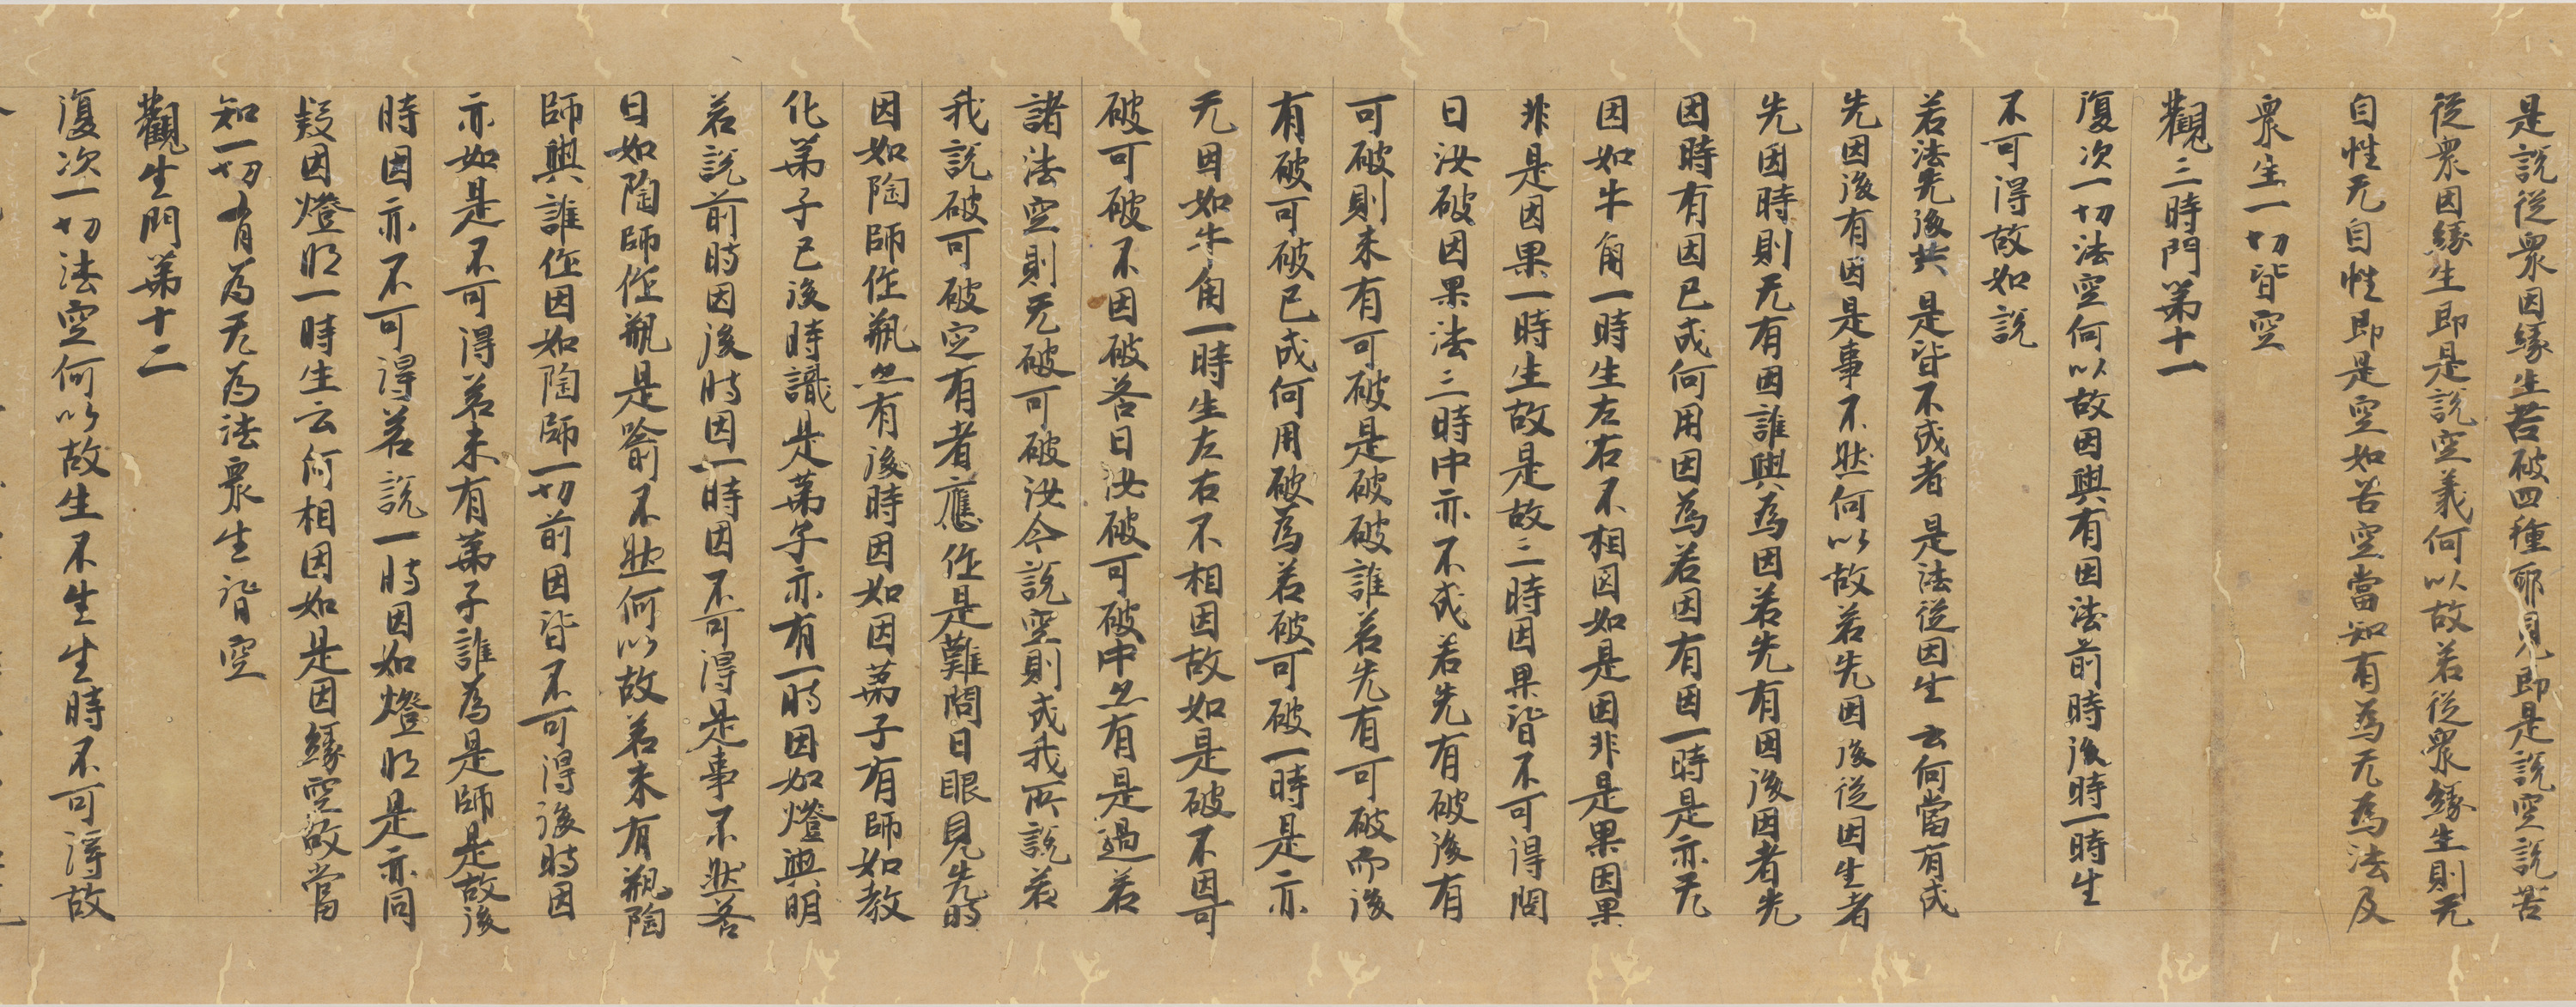 是說從衆因緣生若破四種耶見即是說空說苦
從衆因緣生即是說空義何以故若從衆緣生則无
自性无自性即是空如苦空當知有為无為法及
衆生一切皆空
觀三時門第十一
復次一切法空何以故因與有因法前時後時一時生
不可得故如說
若法先後共 是皆不成者 是法從因生 云何當有成
先因後有因是事不然何以故若先因後從因生者
先因時則无有因誰與為因若先有因後因者先
因時有因已成何用因為若因有因一時是亦无
因如牛角一時生左右不相因如是因非是果因果
非是因果一時生故是故三時因果皆不可得問
曰汝破因果法三時中亦不成若先有破後有
可破則未有可破是破破誰若先有可破而後
有破可破已成何用破為若破可破一時是亦
无因如牛角一時生左右不相因故如是破不因可
破可破不因破荅曰汝破可破中亦有是過若
諸法空則无破可破汝今說空則成我所說若
我說破可破定有者應作是難問曰眼見先時
因如陶師作瓶亦有後時因如因弟子有師如教
化弟子已後時識是弟子亦有一時因如燈與明
若說前時因後時因一時因不可得是事不然荅
曰如陶師作瓶是喻不然何以故若未有瓶陶
師與誰作因如陶師一切前因皆不可得後時因
亦如是不可得若未有弟子誰為是師是故後
時因亦不可得若說一時因如燈明是亦同
疑因燈明一時生云何相因如是因緣空故當
知一切有為无為法衆生皆空
觀生門第十二
復次一切法空何以故生不生生時不可得故